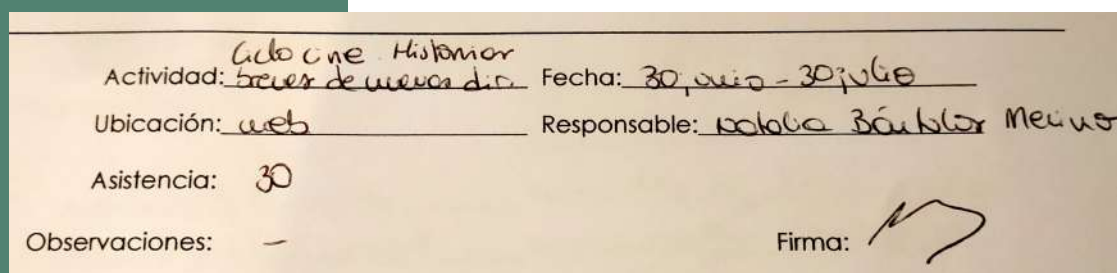 Ciclo cine Historias
Actividad: breves de nuevos dir. Fecha: 30 junio - 30 julio
Ubicación: web Responsable: Natalia Merino
Asistencia: 30
Observaciones: — Firma: